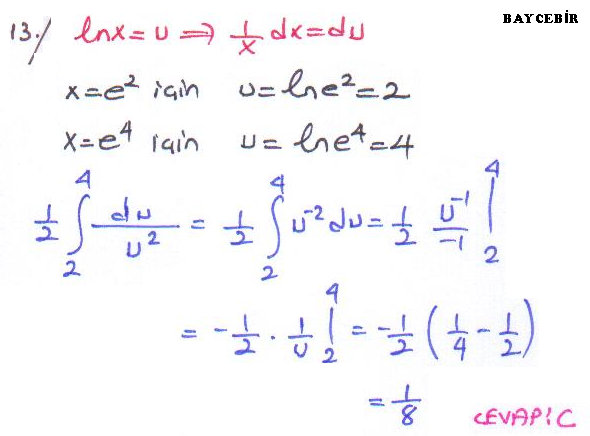 BAYCEBİR
13./ lnx=u ⇒ 1/x dx=du
x=e² için u=lne²=2
x=e⁴ için u=lne⁴=4
1/2 ∫₂⁴ du/u² = 1/2 ∫₂⁴ u⁻² du = 1/2 u⁻¹/-1 |₂⁴
= -1/2 · 1/u |₂⁴ = -1/2 (1/4 - 1/2)
= 1/8
CEVAP: C